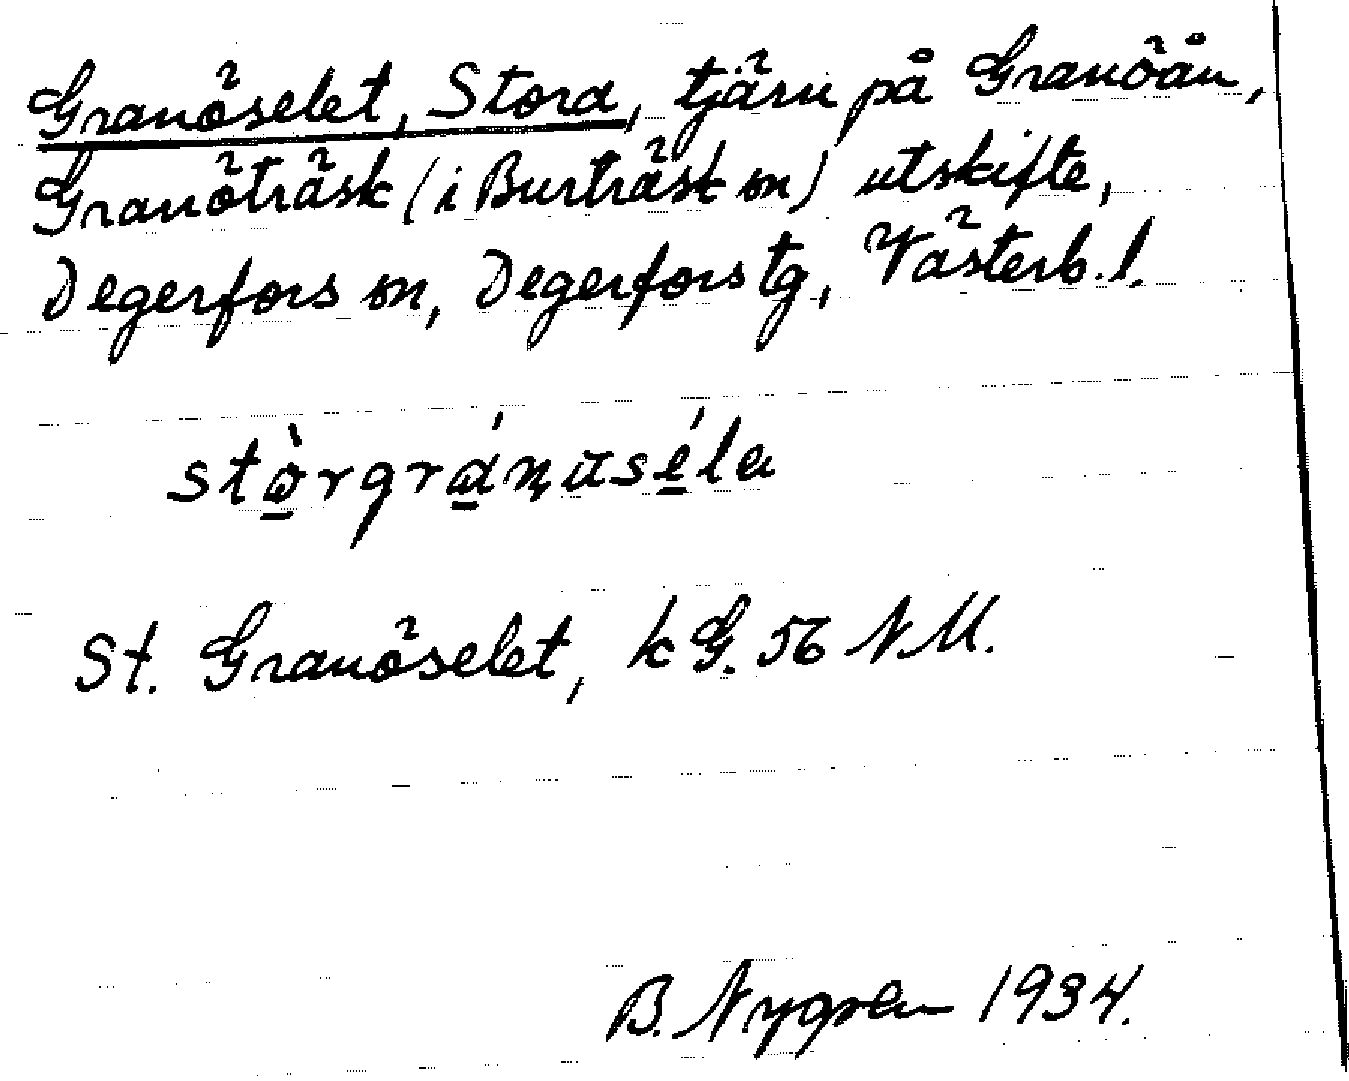 Granöselet, Stora, tjärn på Granöån,
Granöträsk (i Burträsk sn) utskifte,
Degerfors sn, Degerfors tg, Västerb. l.
stò̱rgrá̱n̡ŭsé̱la
St. Granöselet, k G. 56 N.M.
B. Nygren 1934.